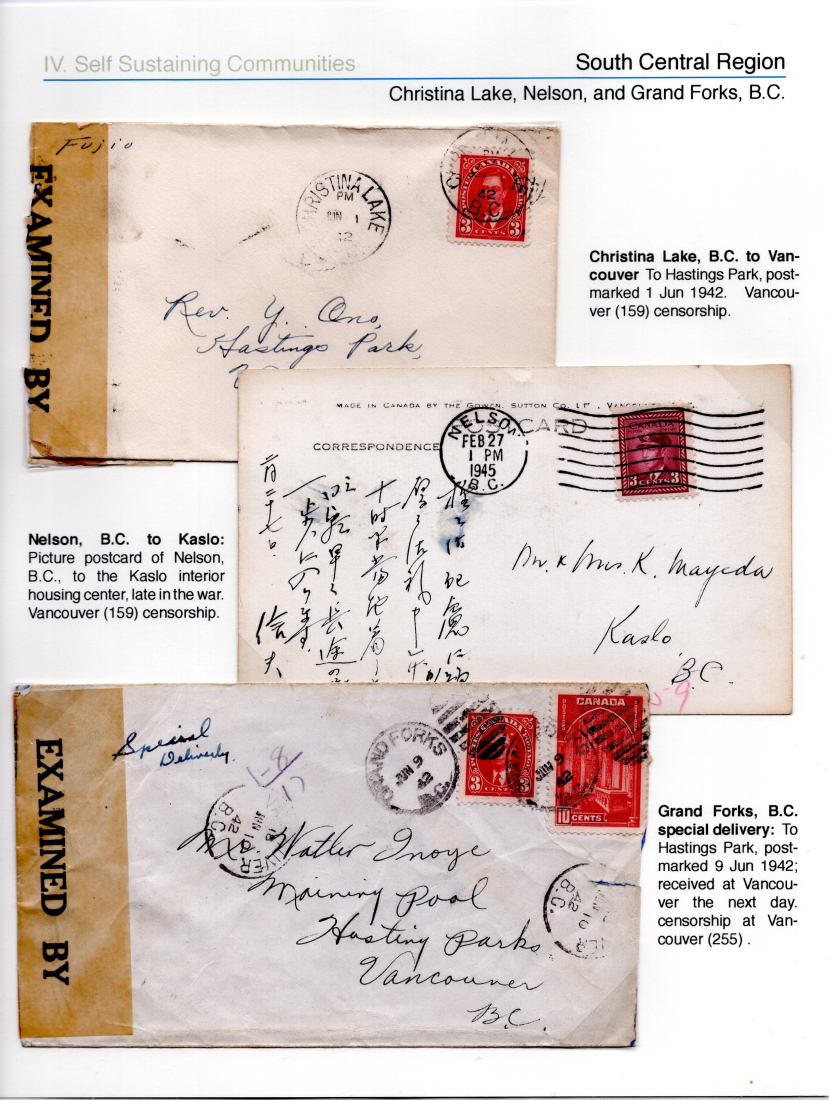 IV. Self Sustaining Communities
South Central Region
Christina Lake, Nelson, and Grand Forks, B.C.
EXAMINED BY
Fujio
CHRISTINA LAKE
PM
JUN 1
42
CANADA
POSTES POSTAGE
3 CENTS 3
42
B.C.
Rev. Y. Ono,
Hastings Park,
Christina Lake, B.C. to Van-
couver To Hastings Park, post-
marked 1 Jun 1942. Vancou-
ver (159) censorship.
MADE IN CANADA BY THE GOWEN, SUTTON CO. LTD., VANCOUVER
CARD
CORRESPONDENCE
NELSON
FEB 27
1 PM
1945
B.C.
CANADA
3 CENTS 3
二月二十七日
信夫
Mr. & Mrs. K. Mayeda
Kaslo
B.C.
5-9
Nelson, B.C. to Kaslo:
Picture postcard of Nelson,
B.C., to the Kaslo interior
housing center, late in the war.
Vancouver (159) censorship.
EXAMINED BY
Special
Delivery
1-8
GRAND FORKS
JUN 9
42
B.C.
3 CENTS 3
JUN 9
42
CANADA
10 CENTS
VANCOUVER
JUN 10
42
B.C.
Mr. Walter Inoye
Maining Pool
Hasting Parks
Vancouver
B.C.
JUN 10
42
B.C.
Grand Forks, B.C.
special delivery: To
Hastings Park, post-
marked 9 Jun 1942;
received at Vancou-
ver the next day.
censorship at Van-
couver (255) .